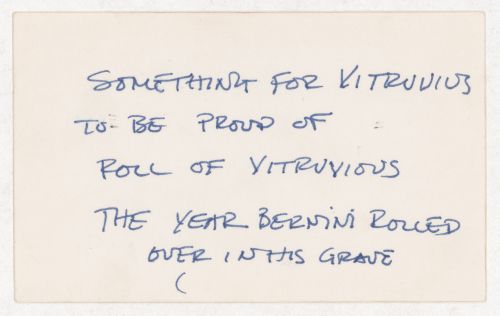 SOMETHING FOR VITRUVIUS
TO BE PROUD OF
ROLL OF VITRUVIOUS
THE YEAR BERNINI ROLLED
OVER IN HIS GRAVE
(